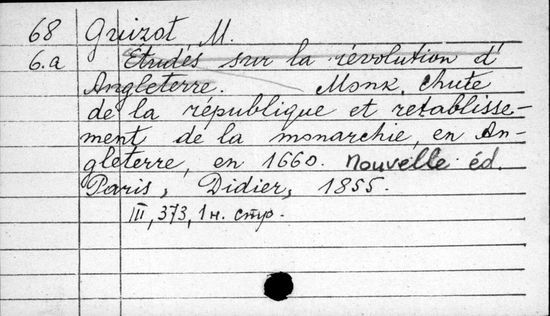 68 Guizot M.
6.a Etudes sur la révolution d'
Angleterre. Monk. Chute
de la république et retablisse-
ment de la monarchie, en An-
gleterre, en 1660. Nouvelle éd.
Paris, Didier, 1855.
III, 373, 1 н. стр.